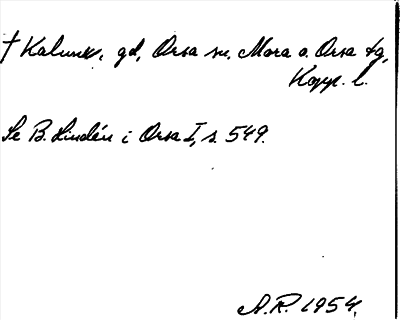 † Kalmus, gd, Orsa sn, Mora o. Orsa tg,
Kopp. l.
Se B. Lindén i Orsa I, s. 549.
A.R. 1954.